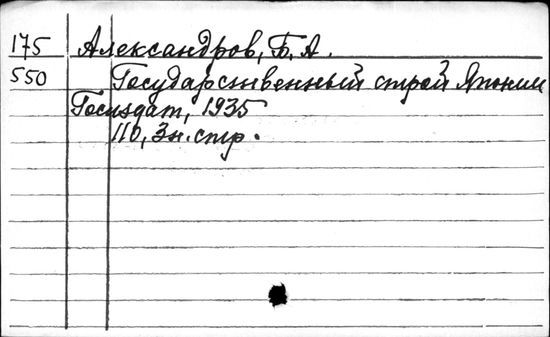 175 Александров, Б. А.
550 Государственный строй Японии
Госиздат, 1935
110, 3н. стр.